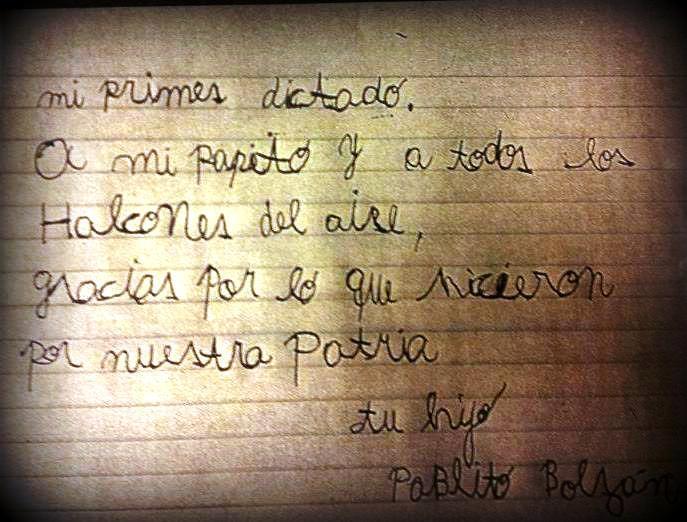 mi primer dictado.
A mi papito y a todos los
Halcones del aire,
gracias por lo que hicieron
por nuestra Patria
tu hijo
PaBlito Bolzán